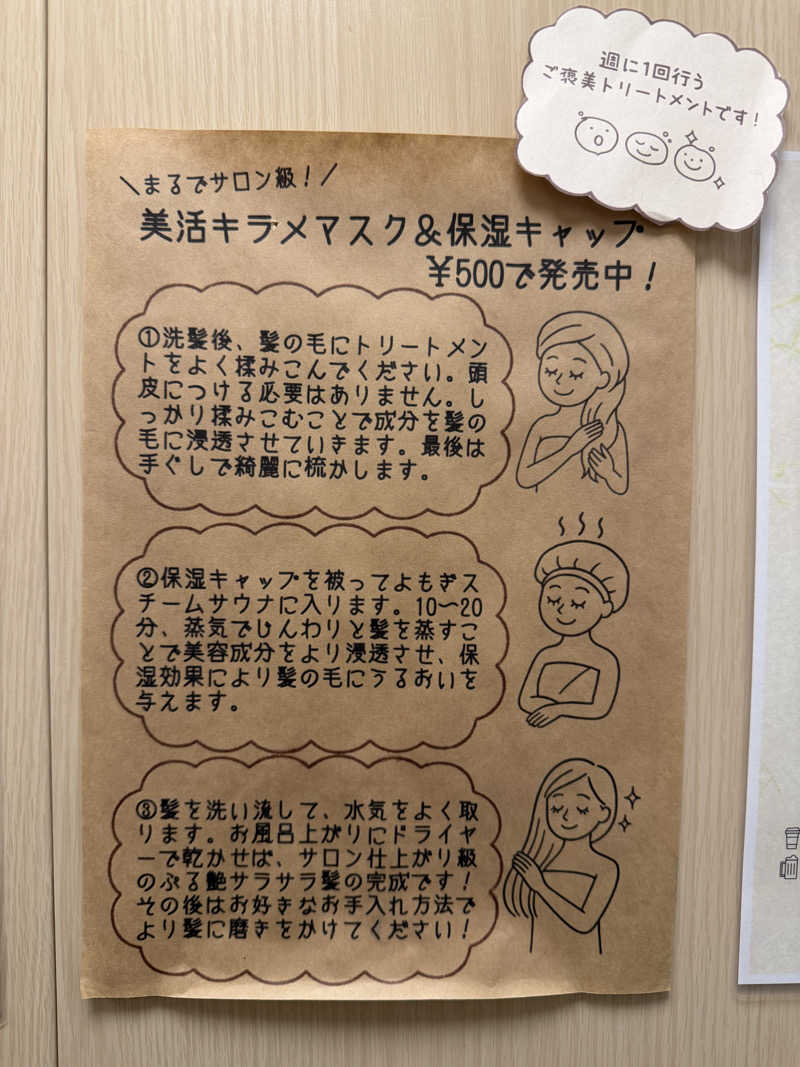 週に1回行う
ご褒美トリートメントです!
\まるでサロン級!/
美活キラメマスク&保湿キャップ
¥500で発売中!
①洗髪後、髪の毛にトリートメン
トをよく揉みこんでください。頭
皮につける必要はありません。し
っかり揉みこむことで成分を髪の
毛に浸透させていきます。最後は
手ぐしで綺麗に梳かします。
②保湿キャップを被ってよもぎス
チームサウナに入ります。10〜20
分、蒸気でじんわりと髪を蒸すこ
とで美容成分をより浸透させ、保
湿効果により髪の毛にうるおいを
与えます。
③髪を洗い流して、水気をよく取
ります。お風呂上がりにドライヤ
ーで乾かせば、サロン仕上がり級
のぷる艶サラサラ髪の完成です!
その後はお好きなお手入れ方法で
より髪に磨きをかけてください!